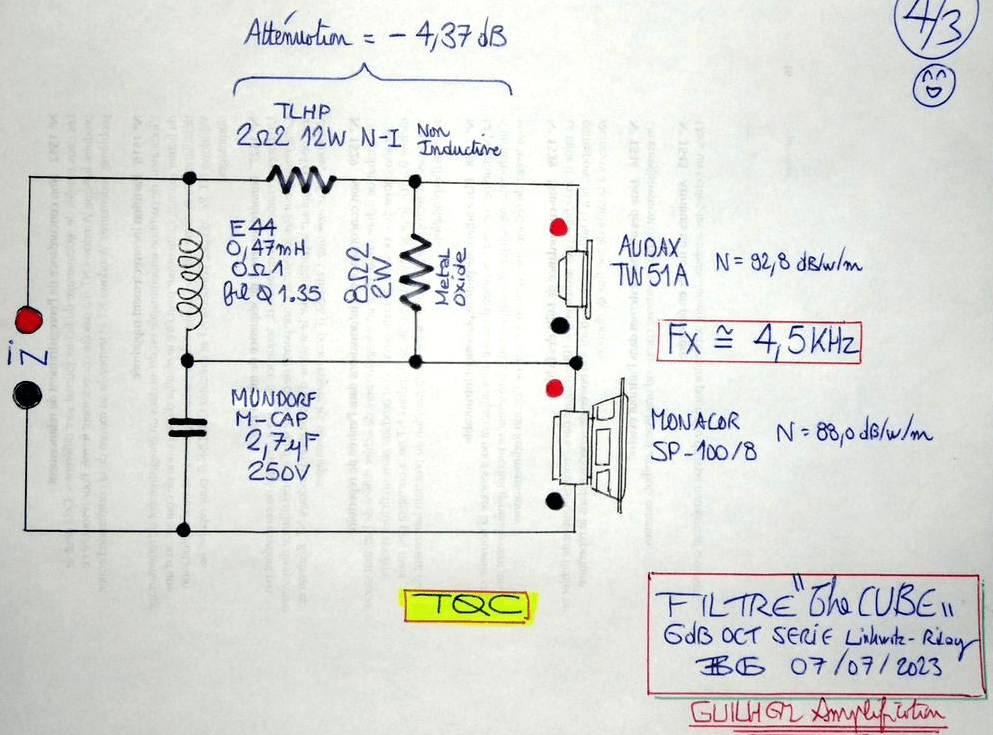 4/3
Atténuation = - 4,37 dB
TLHP
2Ω2 12W N-I Non
Inductive
E44
0,47mH
0Ω1
fil Ø 1.35
8Ω2
2W
Metal
Oxide
AUDAX
TW51A
N = 92,8 dB/w/m
Fx ≅ 4,5KHz
iN
MUNDORF
M-CAP
2,7µF
250V
MONACOR
SP-100/8
N = 88,0 dB/w/m
TQC
FILTRE "The CUBE"
6dB OCT SERIE Linkwitz-Riley
07/07/2023
GUILHEM Amplification